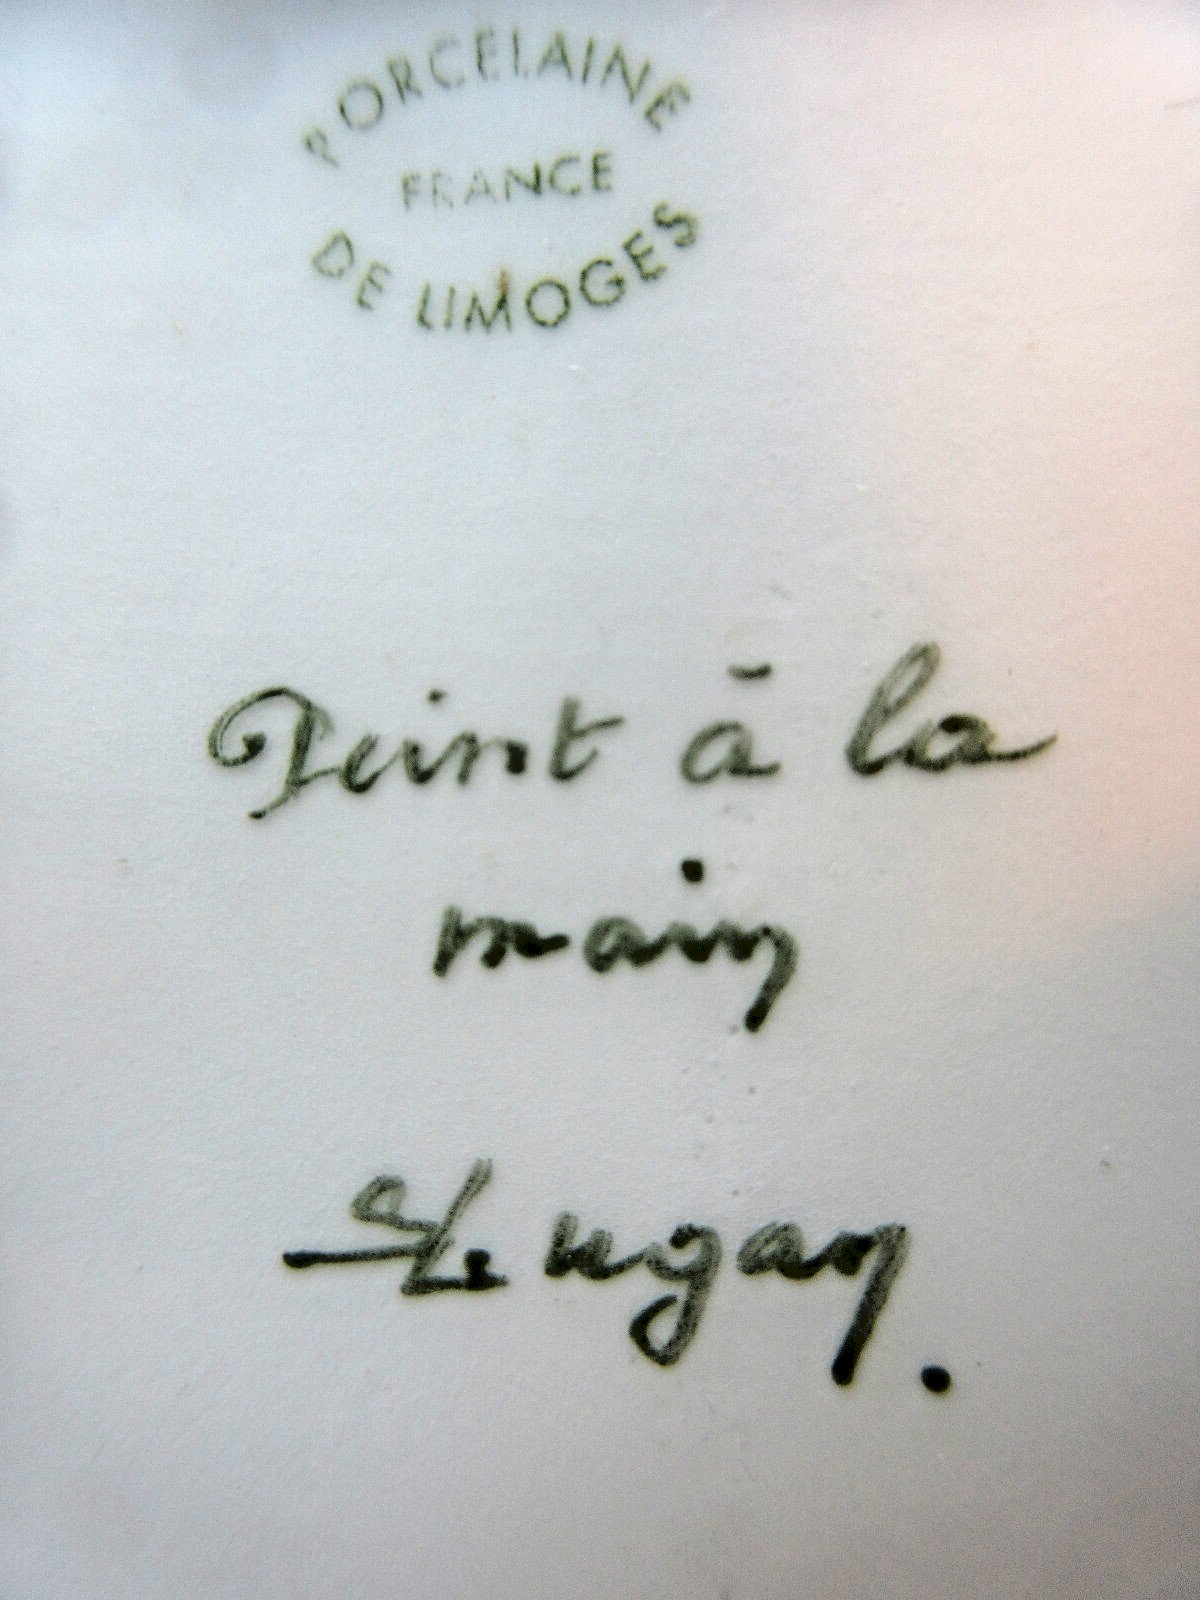 PORCELAINE
FRANCE
DE LIMOGES
Peint à la
main